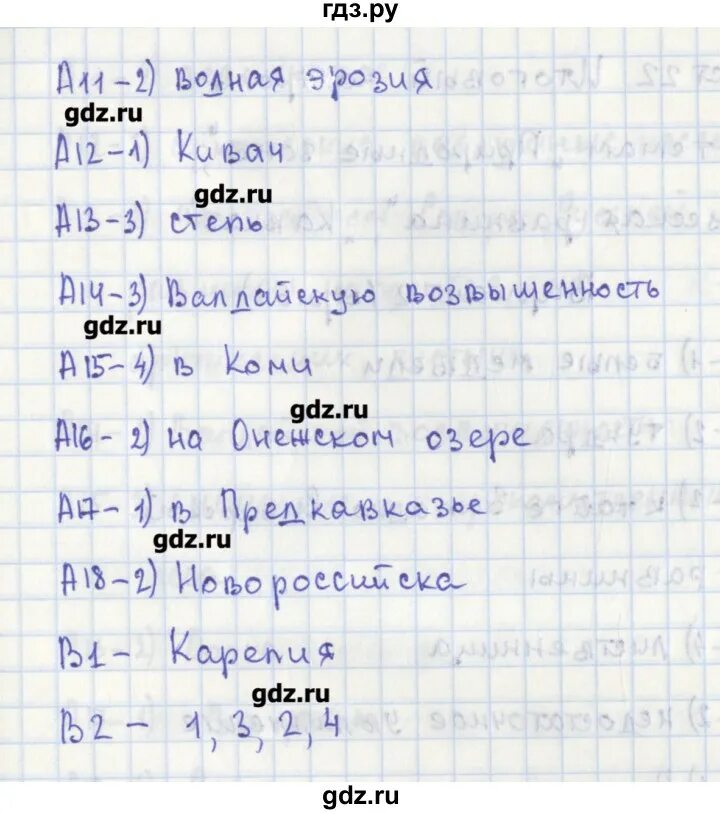 гдз.ру
А11-2) водная эрозия
gdz.ru
А12-1) Кивач
gdz.ru
А13-3) степь
А14-3) Валдайскую возвышенность
gdz.ru
А15-4) в Коми
gdz.ru
А16-2) на Онежском озере
А17-1) в Предкавказье
gdz.ru
А18-2) Новороссийска
В1- Карелия
gdz.ru
В2 - 1, 3, 2, 4
gdz.ru